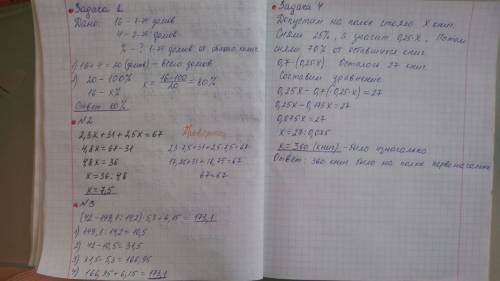 Задача 1
Дано: 16 - 1-эт домов
4 - 2-эт домов
% - ? 1-эт домов от общего колич.
1) 16 + 4 = 20 (домов) - всего домов
2) 20 - 100%
16 - x%
x = 16·100/20 = 80%
Ответ 80%
N2
2,3x+31+2,5x=67
4,8x=67-31
48x=36
x=36:48
x=7,5
Проверка
2,3·7,5+31+2,5·7,5=67
17,25+31+18,75=67
67=67
N3
(42-149,1:14,2)·5,3+6,15=173,1
1) 149,1:14,2=10,5
2) 42-10,5=31,5
3) 31,5·5,3=166,95
4) 166,95+6,15=173,1
Задача 4
Допустим на полке стояло X книг.
Сняли 25%, а значит 0,25X. Потом
сняли 70% от оставшихся книг
0,7·(0,25X) Осталось 27 книг.
Составим уравнение
0,25X-0,7·(0,25X)=27
0,25X-0,175X=27
0,075X=27
X=27:0,075
X=360 (книг) - было изначально
Ответ: 360 книг было на полке первоначально